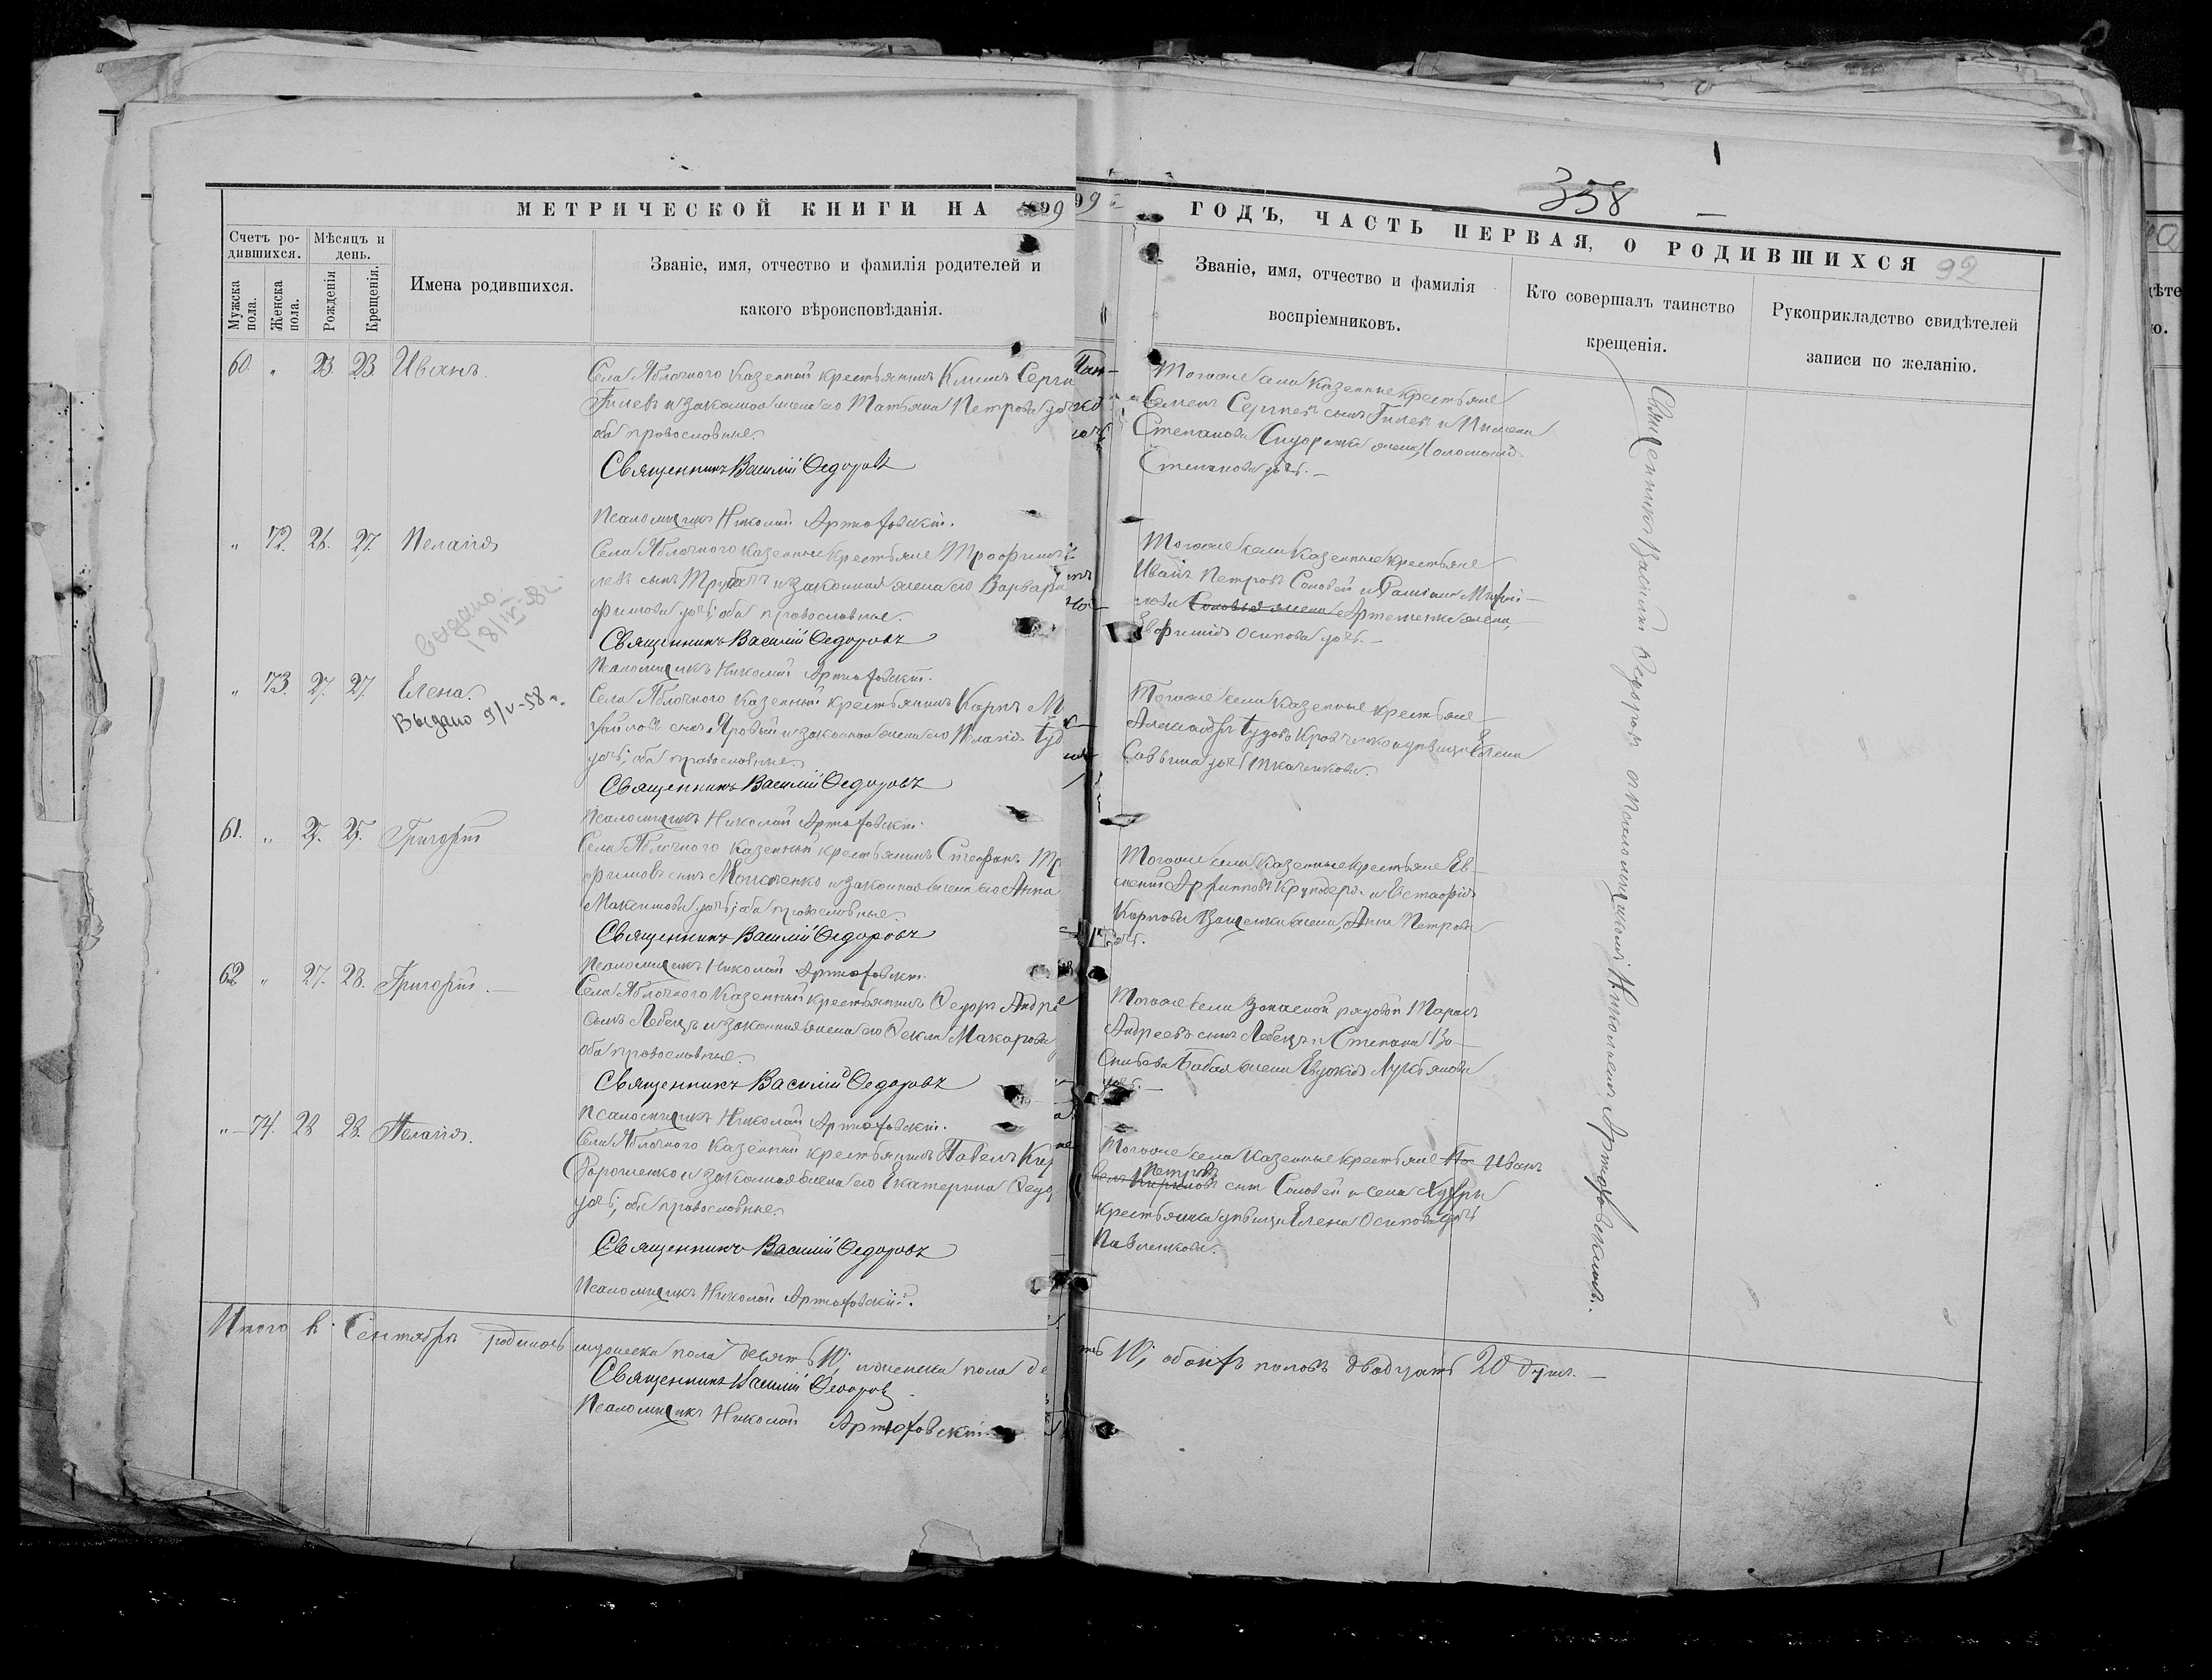 358
92
МЕТРИЧЕСКОЙ КНИГИ НА 1899
ГОДЪ, ЧАСТЬ ПЕРВАЯ, О РОДИВШИХСЯ
Счетъ ро-
дившихся.
Мѣсяцъ и
день.
Мужска
пола.
Женска
пола.
Рожденія
Крещенія.
Имена родившихся.
Званіе, имя, отчество и фамилія родителей и
какого вѣроисповѣданія.
Званіе, имя, отчество и фамилія
воспріемниковъ.
Кто совершалъ таинство
крещенія.
Рукоприкладство свидѣтелей
записи по желанію.
60. " 23. 23. Иванъ.
Села Яблочного казенный крестьянинъ Климъ Серги
и законная жена его Татьяна Петрова
оба православные.
Священникъ Василій Ѳедоровъ
Псаломщикъ Николай Артюховскій.
Тогоже села казенные крестьяне
Семенъ Сергѣевъ сынъ
Степанова жена
Степанова дочь.
" 72. 26. 27. Пелагія
Села Яблочного казенные крестьяне Трофимъ
сынъ и законная жена его Варвара
фимова дочь; оба православные.
Священникъ Василій Ѳедоровъ
Псаломщикъ Николай Артюховскій.
Выдано
Тогоже села казенные крестьяне
Иванъ Петровъ Соловей и
Соловья жена Артеменка жена,
Евфимія Осипова дочь.
" 73. 27. 27. Елена.
Выдано 9/V-58 г.
Села Яблочного казенный крестьянинъ Карпъ М
хайловъ сынъ Яровый и законная жена его Пелагія
дочь; оба православные.
Священникъ Василій Ѳедоровъ
Псаломщикъ Николай Артюховскій.
Тогоже села казенные крестьяне
Александръ Іудовъ Кравченко и дѣвица Елена
Саввина дочь Ткаченкова.
61. " 27. 27. Григорій
Села Яблочного казенный крестьянинъ Стефанъ Тр
фимовъ сынъ и законная жена его Анна
Максимова дочь; оба православные.
Священникъ Василій Ѳедоровъ
Псаломщикъ Николай Артюховскій.
Тогоже села казенные крестьяне Ев-
и
Карпова жена, Анна Петрова
дочь.
62 " 27. 28. Григорій.
Села Яблочного казенный крестьянинъ Ѳедоръ Андре
сынъ Лебедь и законная жена его Ѳекла Макарова
оба православные.
Священникъ Василій Ѳедоровъ
Псаломщикъ Николай Артюховскій.
Тогоже села запасной рядовой Тарасъ
Андреевъ сынъ Лебедь и Степана
Бабая жена Евдокія Лукьянова
дочь.
" 74. 28 28. Пелагія.
Села Яблочного казенный крестьянинъ Павелъ Кир
Дорошенко и законная жена его Екатерина Ѳедо
дочь; оба православные.
Священникъ Василій Ѳедоровъ
Псаломщикъ Николай Артюховскій.
Тогоже села казенные крестьяне Па Иванъ
Петровъ
велъ Кириловъ сынъ Соловей и села Хухры
крестьянка дѣвица Елена Осипова дочь
Павленкова.
Священникъ Василій Ѳедоровъ съ псаломщикомъ Николаемъ Артюховскимъ.
Итого въ Сентябрѣ родилось мужеска пола десять 10, женска пола де
ять 10, обоихъ половъ двадцать 20 душъ.
Священникъ Василій Ѳедоровъ
Псаломщикъ Николай Артюховскій.